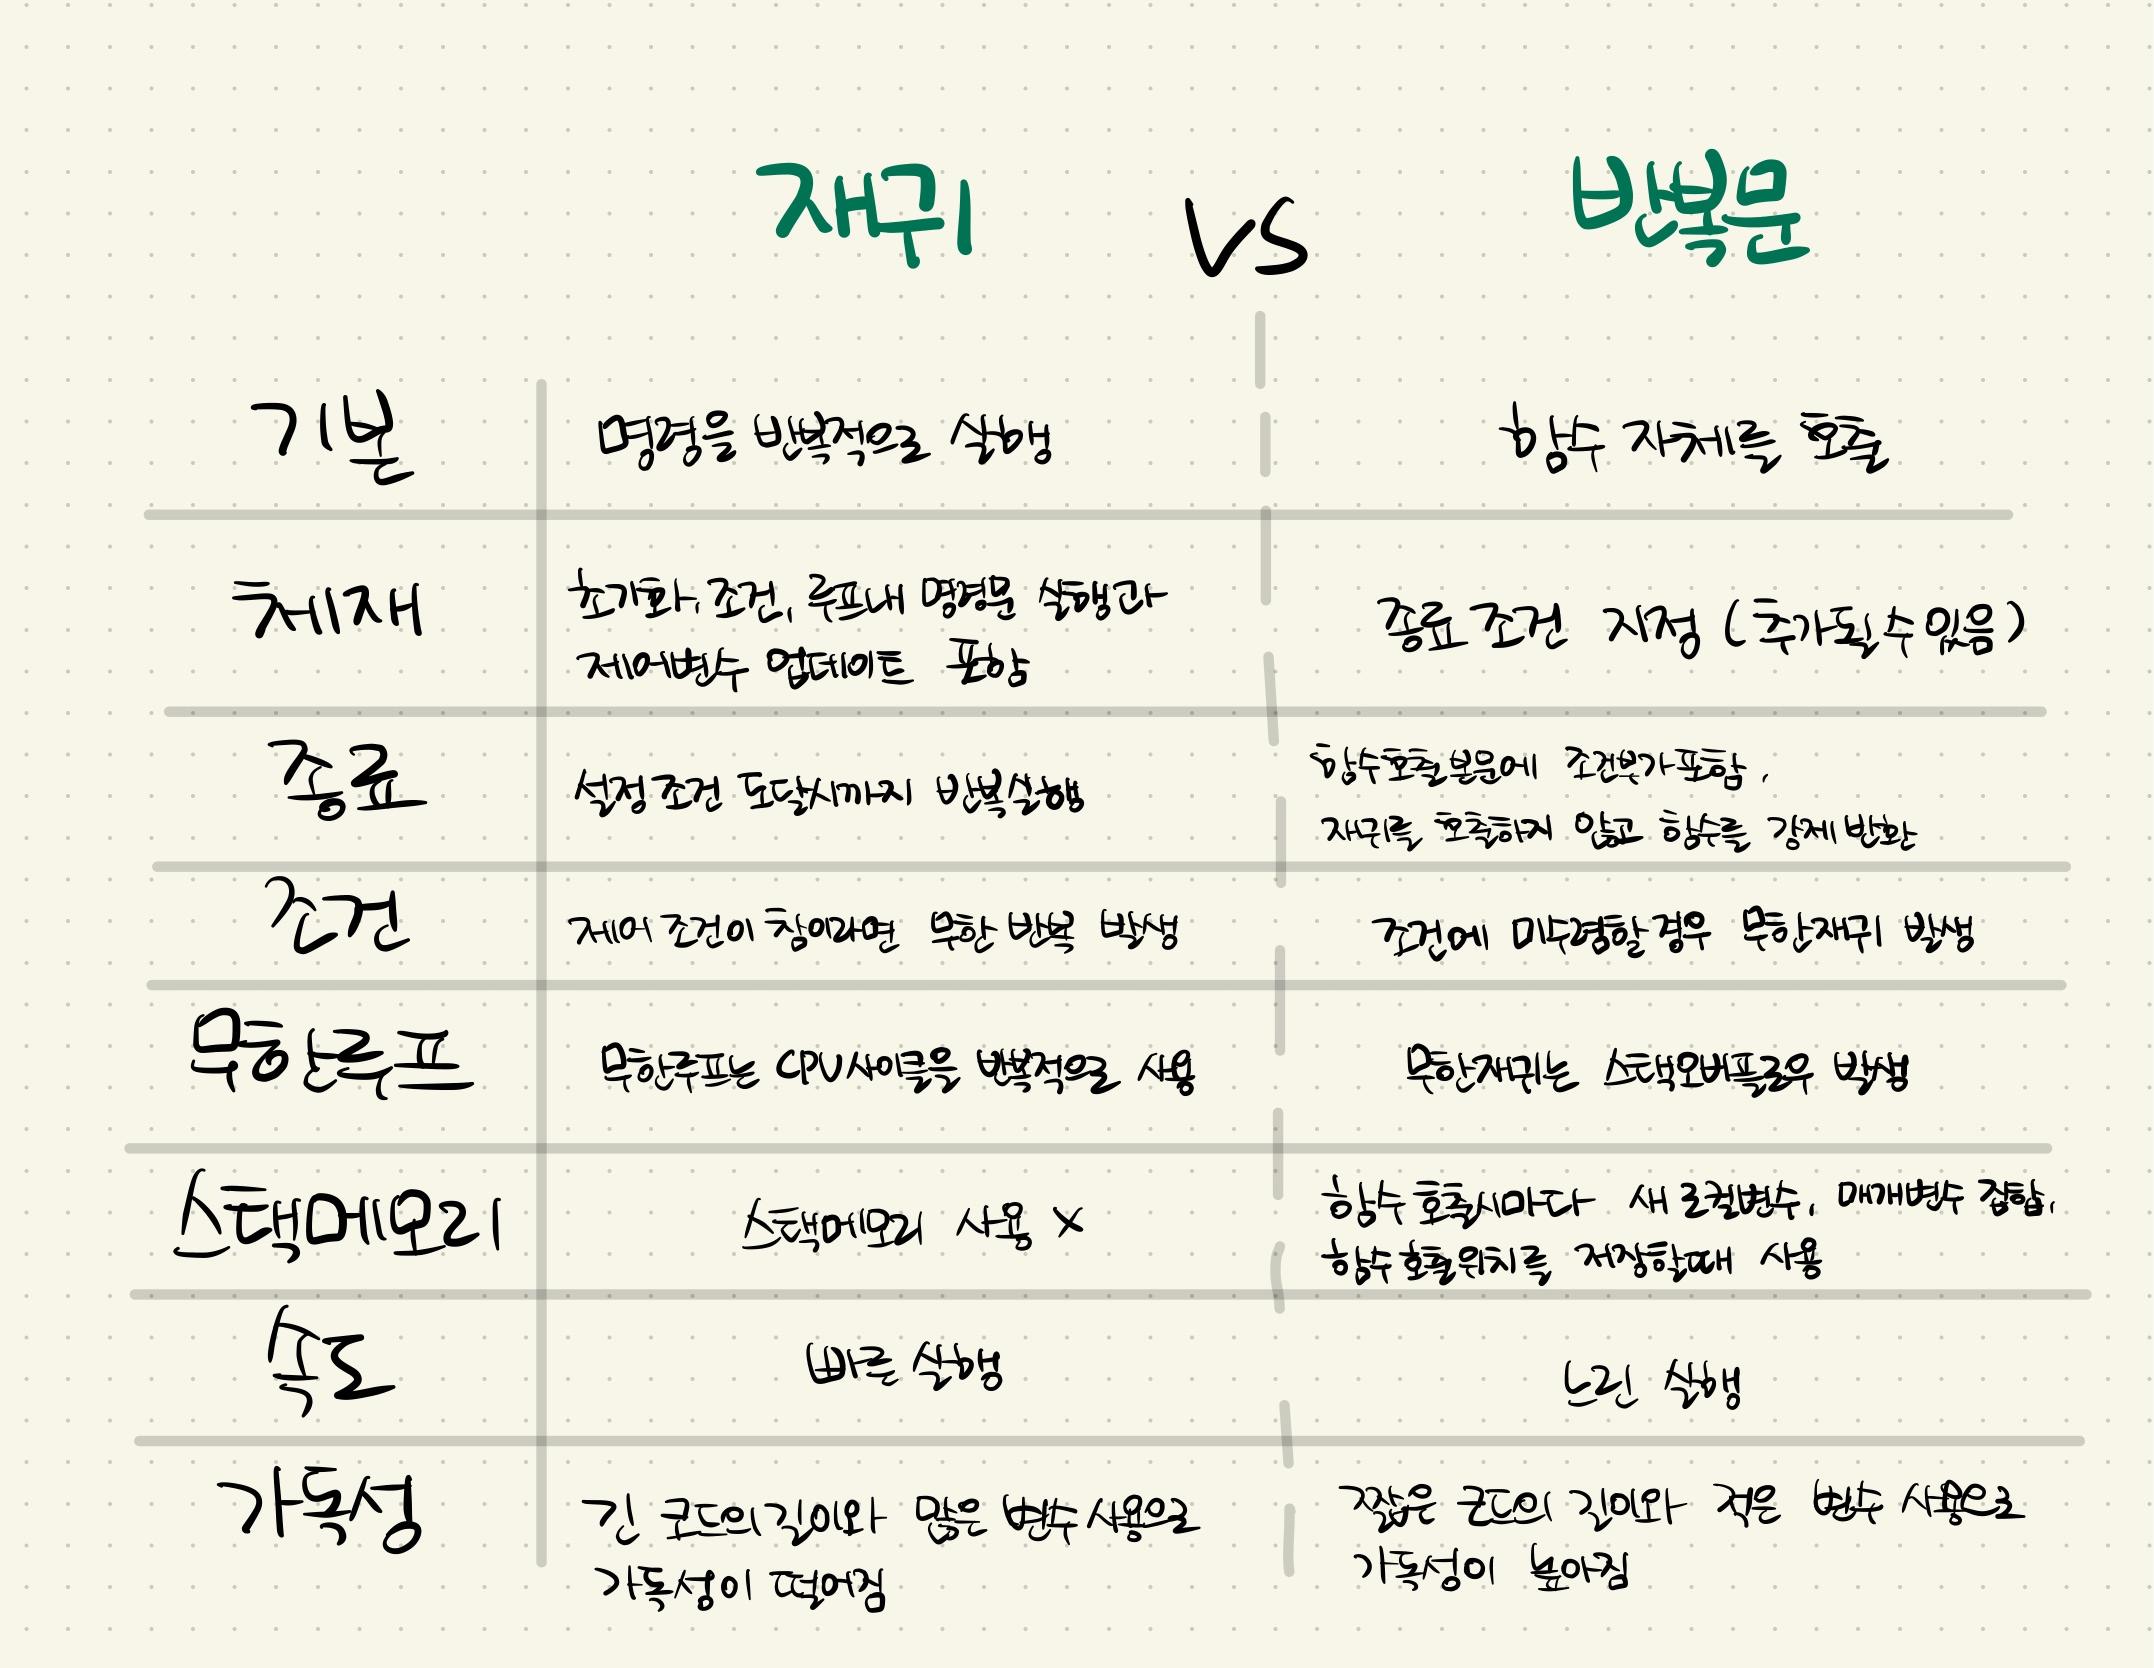 재귀 VS 반복문
기본 명령을 반복적으로 실행 함수 자체를 호출
체재 초기화, 조건, 루프내 명령문 실행과
제어변수 업데이트 포함 종료조건 지정 (추가될수있음)
종료 설정조건 도달시까지 반복실행 함수호출본문에 조건부가포함,
재귀를 호출하지 않고 함수를 강제반환
조건 제어 조건이 참이라면 무한 반복 발생 조건에 미수렴할경우 무한재귀 발생
무한루프 무한루프는 CPU사이클을 반복적으로 사용 무한재귀는 스택오버플로우 발생
스택메모리 스택메모리 사용 X 함수 호출시마다 새 로컬변수, 매개변수 집합,
함수호출위치를 저장할때 사용
속도 빠른 실행 느린 실행
가독성 긴 코드의길이와 많은 변수사용으로 짧은 코드의 길이와 적은 변수 사용으로
가독성이 떨어짐 가독성이 높아짐